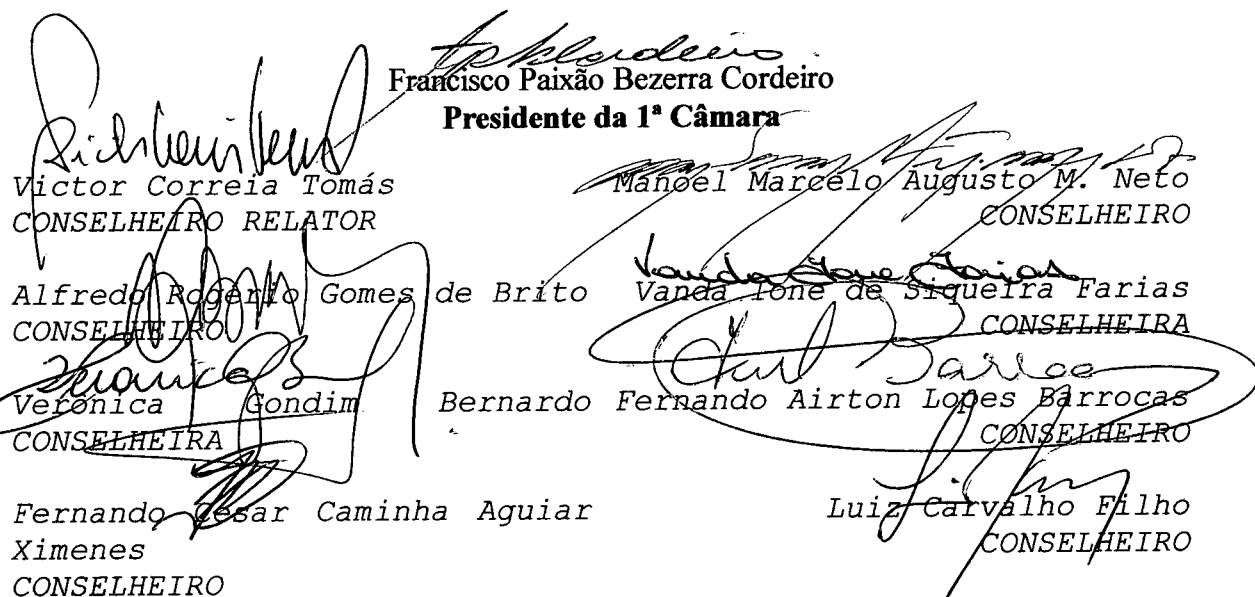 Francisco Paixão Bezerra Cordeiro
Presidente da 1ª Câmara
Victor Correia Tomás
CONSELHEIRO RELATOR
Manoel Marcelo Augusto M. Neto
CONSELHEIRO
Alfredo Rogério Gomes de Brito
CONSELHEIRO
Vanda Ione de Siqueira Farias
CONSELHEIRA
Verônica Gondim Bernardo
CONSELHEIRA
Fernando Airton Lopes Barrocas
CONSELHEIRO
Fernando César Caminha Aguiar
Ximenes
CONSELHEIRO
Luiz Carvalho Filho
CONSELHEIRO